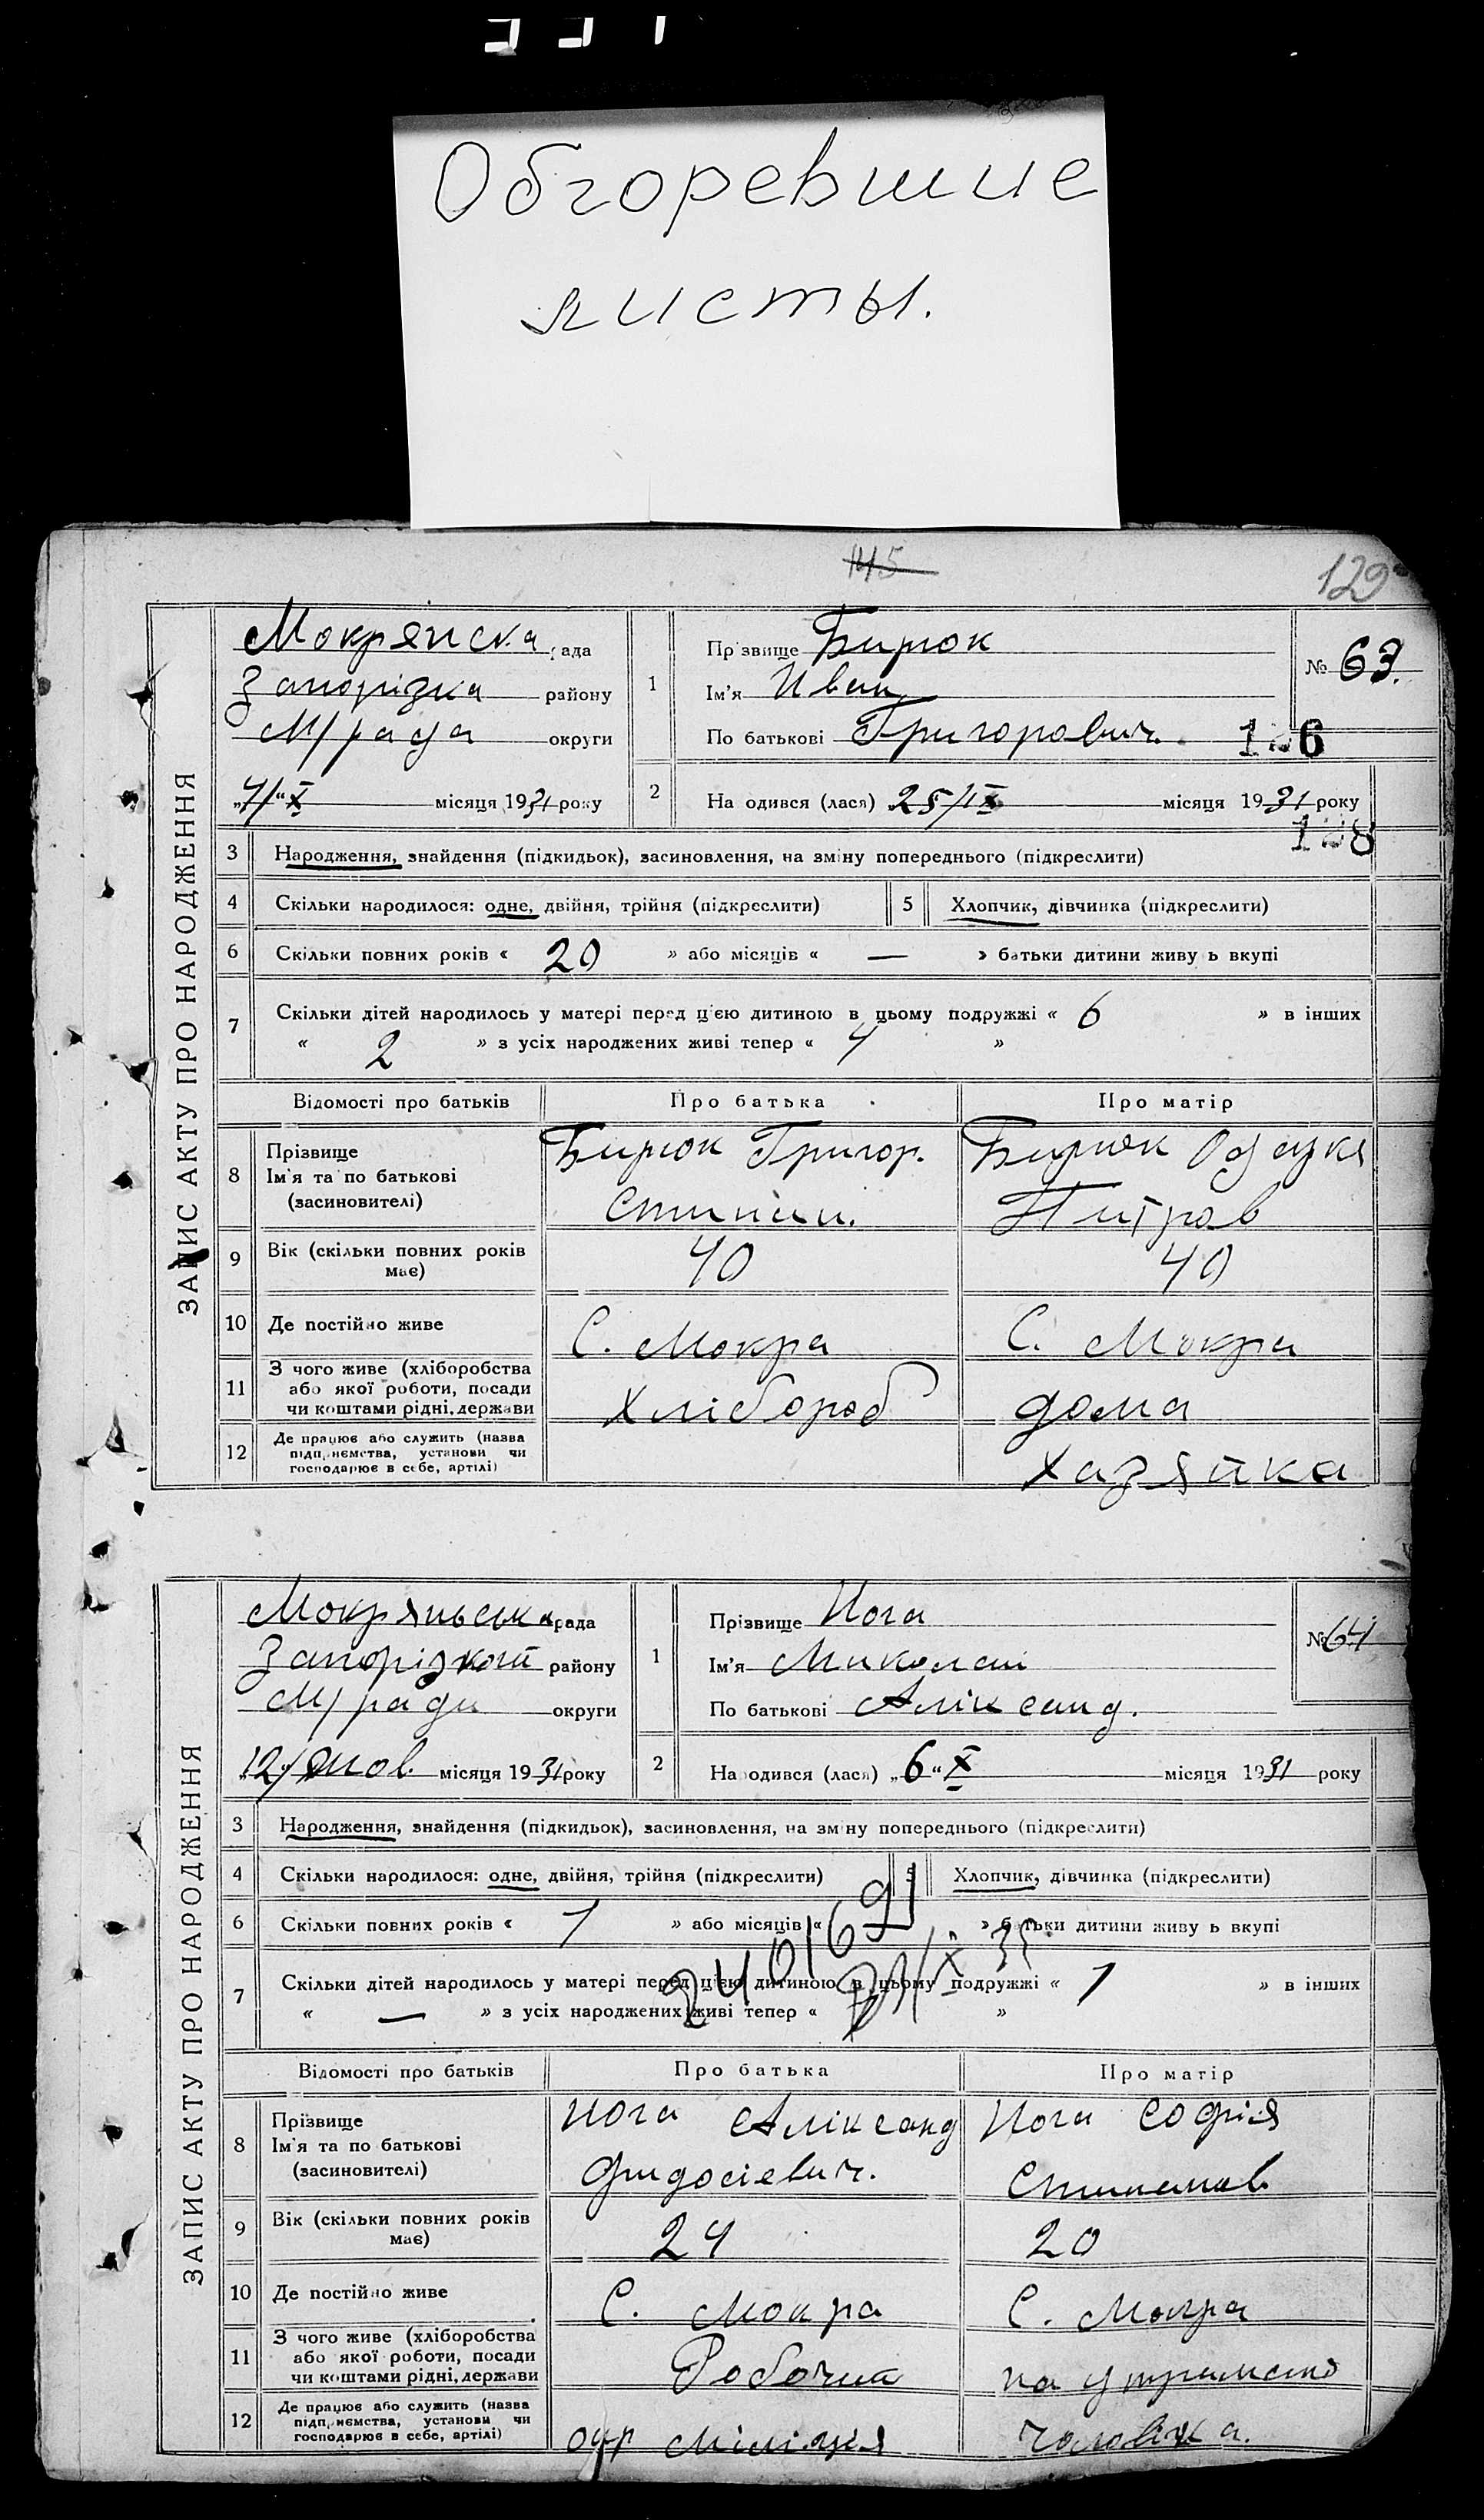 Обгоревшие
листы.
145
129
ЗАПИС АКТУ ПРО НАРОДЖЕННЯ
Мокрянска рада
Запорізка району
М/рада округи
„7/“ X місяця 1931 року
1 Прізвище Бирюк
Ім'я Иван
По батькові Григорович.
№ 63.
2 Народився (лася) 25/IX місяця 1931 року
3 Народження, знайдення (підкидьок), засиновлення, на зміну попереднього (підкреслити)
4 Скільки народилося: одне, двійня, трійня (підкреслити) 5 Хлопчик, дівчинка (підкреслити)
6 Скільки повних років « 20 » або місяців « — » батьки дитини живуть вкупі
7 Скільки дітей народилось у матері перед цією дитиною в цьому подружжі « 6 » в інших
« 2 » з усіх народжених живі тепер « 4 »
Відомості про батьків Про батька Про матір
8 Прізвище
Ім'я та по батькові
(засиновителі)
Бирюк Григор.
Бирюк
9 Вік (скільки повних років
має)
40 40
10 Де постійно живе С. Мокра С. Мокра
11 З чого живе (хліборобства
або якої роботи, посади
чи коштами рідні, держави
Хлібороб дома
12 Де працює або служить (назва
підприємства, установи чи
господарює в себе, артілі)
Хазяйка
ЗАПИС АКТУ ПРО НАРОДЖЕННЯ
Мокряньська рада
Запорізкой району
М/ради округи
місяця 1931 року
1 Прізвище Нога
Ім'я Миколай
По батькові Аліксанд.
№ 64
2 Народився (лася) „6“ X місяця 1931 року
3 Народження, знайдення (підкидьок), засиновлення, на зміну попереднього (підкреслити)
4 Скільки народилося: одне, двійня, трійня (підкреслити) 5 Хлопчик, дівчинка (підкреслити)
6 Скільки повних років « 1 » або місяців « » батьки дитини живуть вкупі
7 Скільки дітей народилось у матері перед цією дитиною в цьому подружжі « 1 » в інших
« — » з усіх народжених живі тепер « »
Відомості про батьків Про батька Про матір
8 Прізвище
Ім'я та по батькові
(засиновителі)
Нога Аліксанд
Фидосіевич.
Нога Софія
9 Вік (скільки повних років
має)
24 20
10 Де постійно живе С. Мокра С. Мокра
11 З чого живе (хліборобства
або якої роботи, посади
чи коштами рідні, держави
Робочий на
12 Де працює або служить (назва
підприємства, установи чи
господарює в себе, артілі)
Міліція чоловіка.